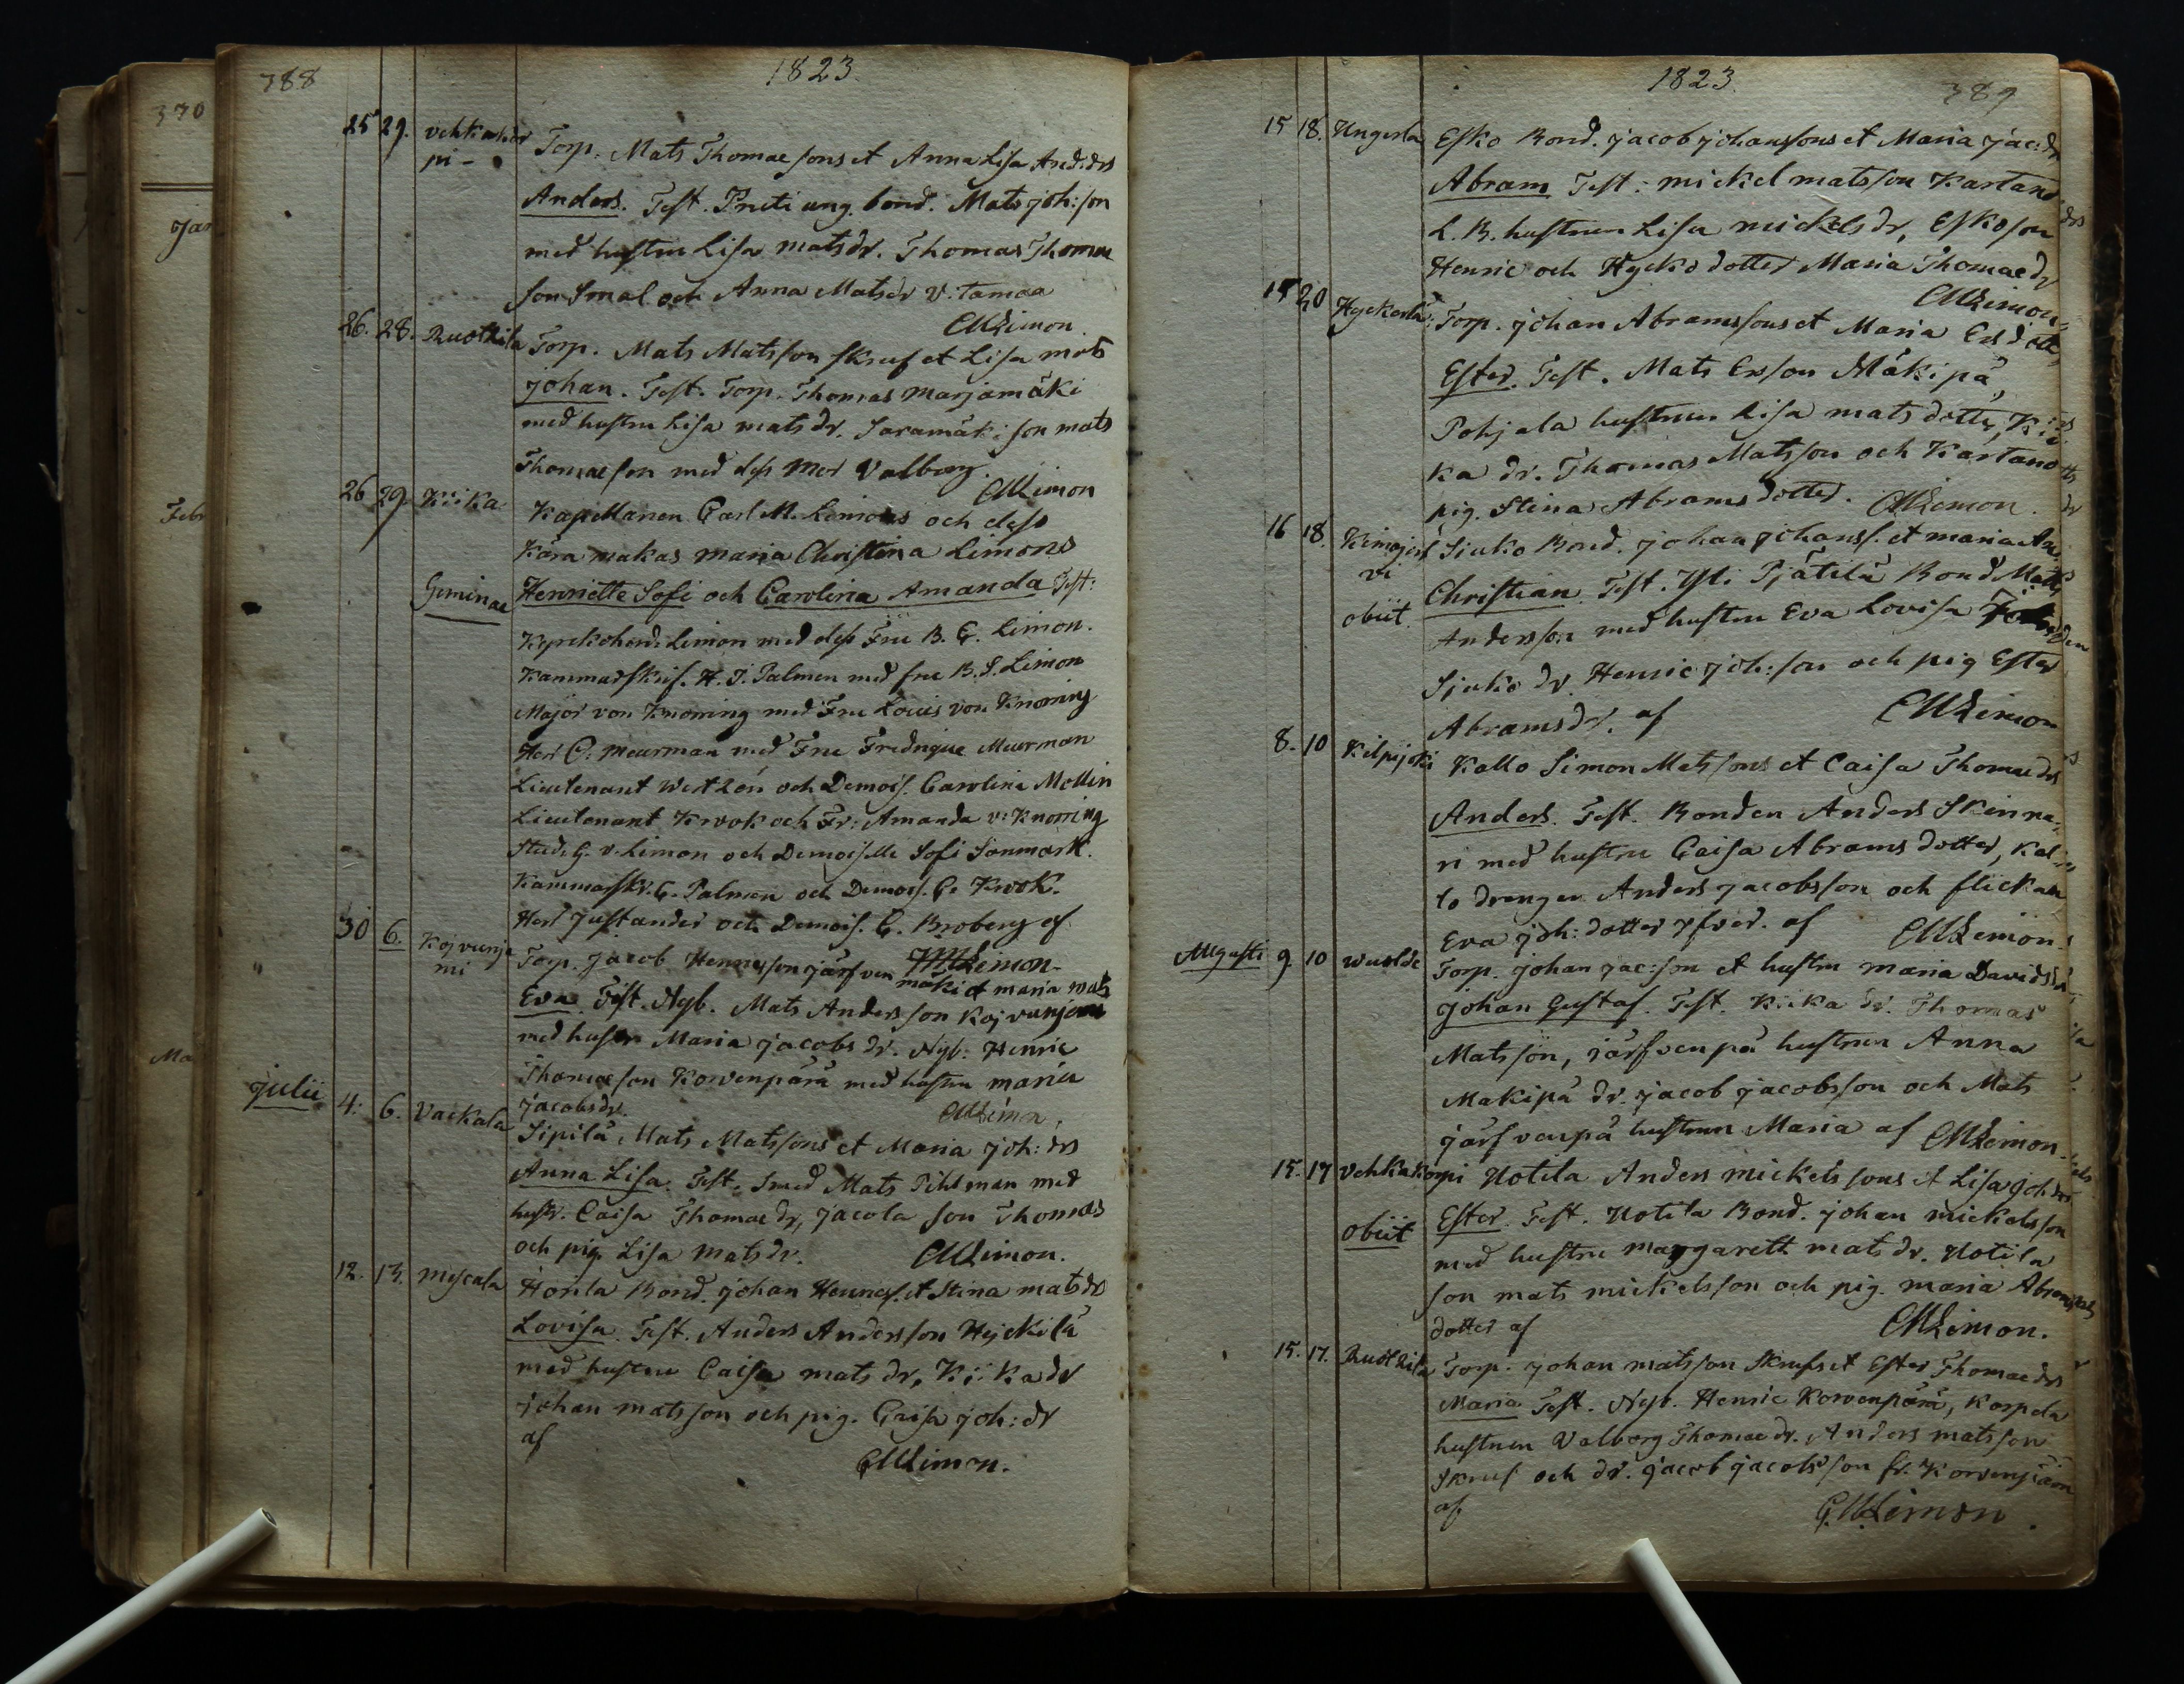 388
1823.
25 29. Torp. Mats Thomaesons et Anna Lisa And:drs
pi-
Anders. Test. Pretti ung. bond. Mats joh:son
med hustru Lisa matsdr. Thomas Thomae
son Smal och Anna Matsdr V. tamaa
CMLimon.
26. 28. Ruotzila Torp. Mats Matsson skruf et Lisa mats
johan. Test. Torp. Thomas Marjamäki
med hustru Lisa mats dr. Saramäki son mats
Thomaeson med dess mor Valborg.
CMLimon
26 29. Kiika Kapellanen Carl M. Limons och dess
Kära makas maria Christina Limons
Geminae Henriette Sofi och Carolina Amanda Test:
Limon med dess Fru B. C. Limon.
Kammarskrif. H. J. Palmen med fru B. S. Limon
Major von Knorring med Fru Lovis von Knorring
Herr C. Meurman med Fru Fredrique Meurman
Lieutenant och Demois. Carolina Mollin
Lieutenant Krook och Fr: Amanda v: Knorring
Stud. G. v. Limon och Demoiselle Sofi Sonmark.
Kammarskr. C. Palmen och Demois. C. Krook.
Herr Justander och Demois. C. Broberg af
CMLimon
30 6. Kojvunje
mi
Torp. Jacob Henricsson järfven
mäki et maria mats
Eva. Test. Nyb. Mats Andersson Kojvunjemi
med hustru Maria jacobs dr. Nyb. Henric
Thomaeson Korvenpärä med hustru maria
jacobsdr.
CMLimon.
julii 4. 6. Vackala Sipilä Mats Matssons et Maria joh: drs
Anna Lisa. Test. Smed Mats Pihlman med
hustr. Caisa Thomae dr, jacola son Thomas
och pig. Lisa mats dr. CMLimon.
12. 13. Myscala Honla Bond. johan Henricss. et Stina mats drs
Lovisa. Test. Anders Andersson Hyckilä
med hustru Caisa mats dr, Kiika dr
johan matsson och pig. Caisa joh: dr
af
CMLimon.
1823.
389
15 18. Ungerla Esko Bond. jacob johanssons et Maria jac:dr
Abram Test: mickel matsson Kartano
L. B. hustrun Lisa mickels dr, Esko son
Henric och Hycko dotter Maria Thomae dr
CMLimon
15 20 Torp. johan Abramssons et Maria Ers dotter
Ester. Test. Mats Ersson Mäkipä,
Pohjala hustrun Lisa mats dotter, Kii
ka dr. Thomas Matsson och Kartano
pig. Stina Abrams dotter. CMLimon.
16 18. Kimajer
vi
obiit.
Sjuko Bond. johan johanss. et maria An
Christian. Test. Yli Pjätilä Bond Matts
Andersson med hustru Eva Lovisa
Sjuko dr. Henric joh:son och pig Ester
Abramsdr. af CMLimon
8. 10 Kilpijoki Kallo Simon Matssons et Caisa Thomae drs
Anders. Test. Bonden Anders Skinna
ri med hustru Caisa Abrams dotter, Kal
lo drengen Anders jacobsson och flickan
Eva joh: dotter af CMLimon.
Augusti 9. 10 Torp. johan jac:son et hustru maria Davidsdr
johan Gustaf. Test. Kiika dr. Thomas
Matsson, järfvenpä hustrun Anna
Makipä dr. jacob jacobsson och Mats
järfvenpä hustrun Maria af CMLimon.
15. 17 Vehkakorpi Uotila Anders mickelssons et Lisa joh drs
obiit
Ester. Test. Uotila Bond. johan mickelsson
med hustru margareth mats dr. Uotila
son mats mickelsson och pig. maria Abrams
dotter af CMLimon.
15. 17. Ruotzila Torp. johan matsson Skrufs et Ester Thomae drs
Maria Test. Nyb. Henric Korvenpärä, Korpela
hustrun Valborg Thomae dr. Anders matsson
Skruf och dr. jacob jacobsson fr. Korvenpärä
af
CMLimon.
370
Jan
Febr
Ma